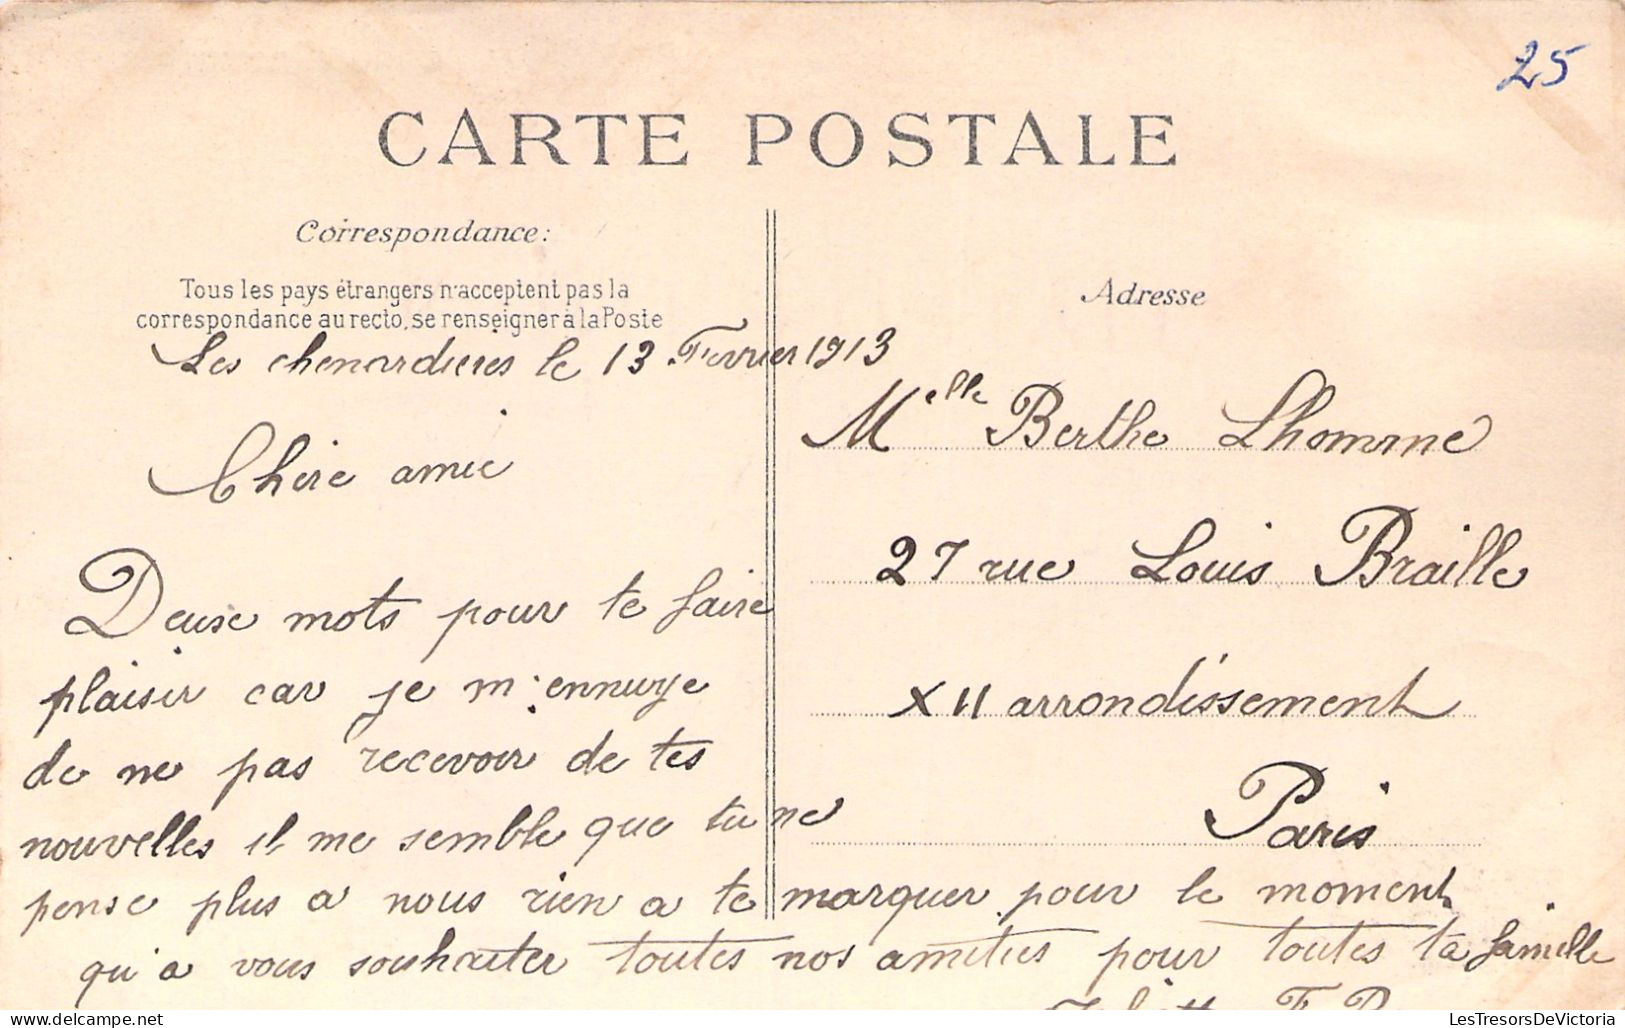 25
CARTE POSTALE
Correspondance:
Tous les pays étrangers n'acceptent pas la
correspondance au recto, se renseigner à la Poste
Les chenardieres le 13 Fevrier 1913
Chere amie
Deuse mots pour te faire
plaisir car je m'ennuye
de ne pas recevoir de tes
nouvelles il me semble que tu ne
pense plus a nous rien a te marquer pour le moment
qu'a vous souhaiter toutes nos amities pour toutes ta famille
Adresse
Melle Berthe Lhomme
27 rue Louis Braille
XII arrondissement
Paris
LesTresorsDeVictoria